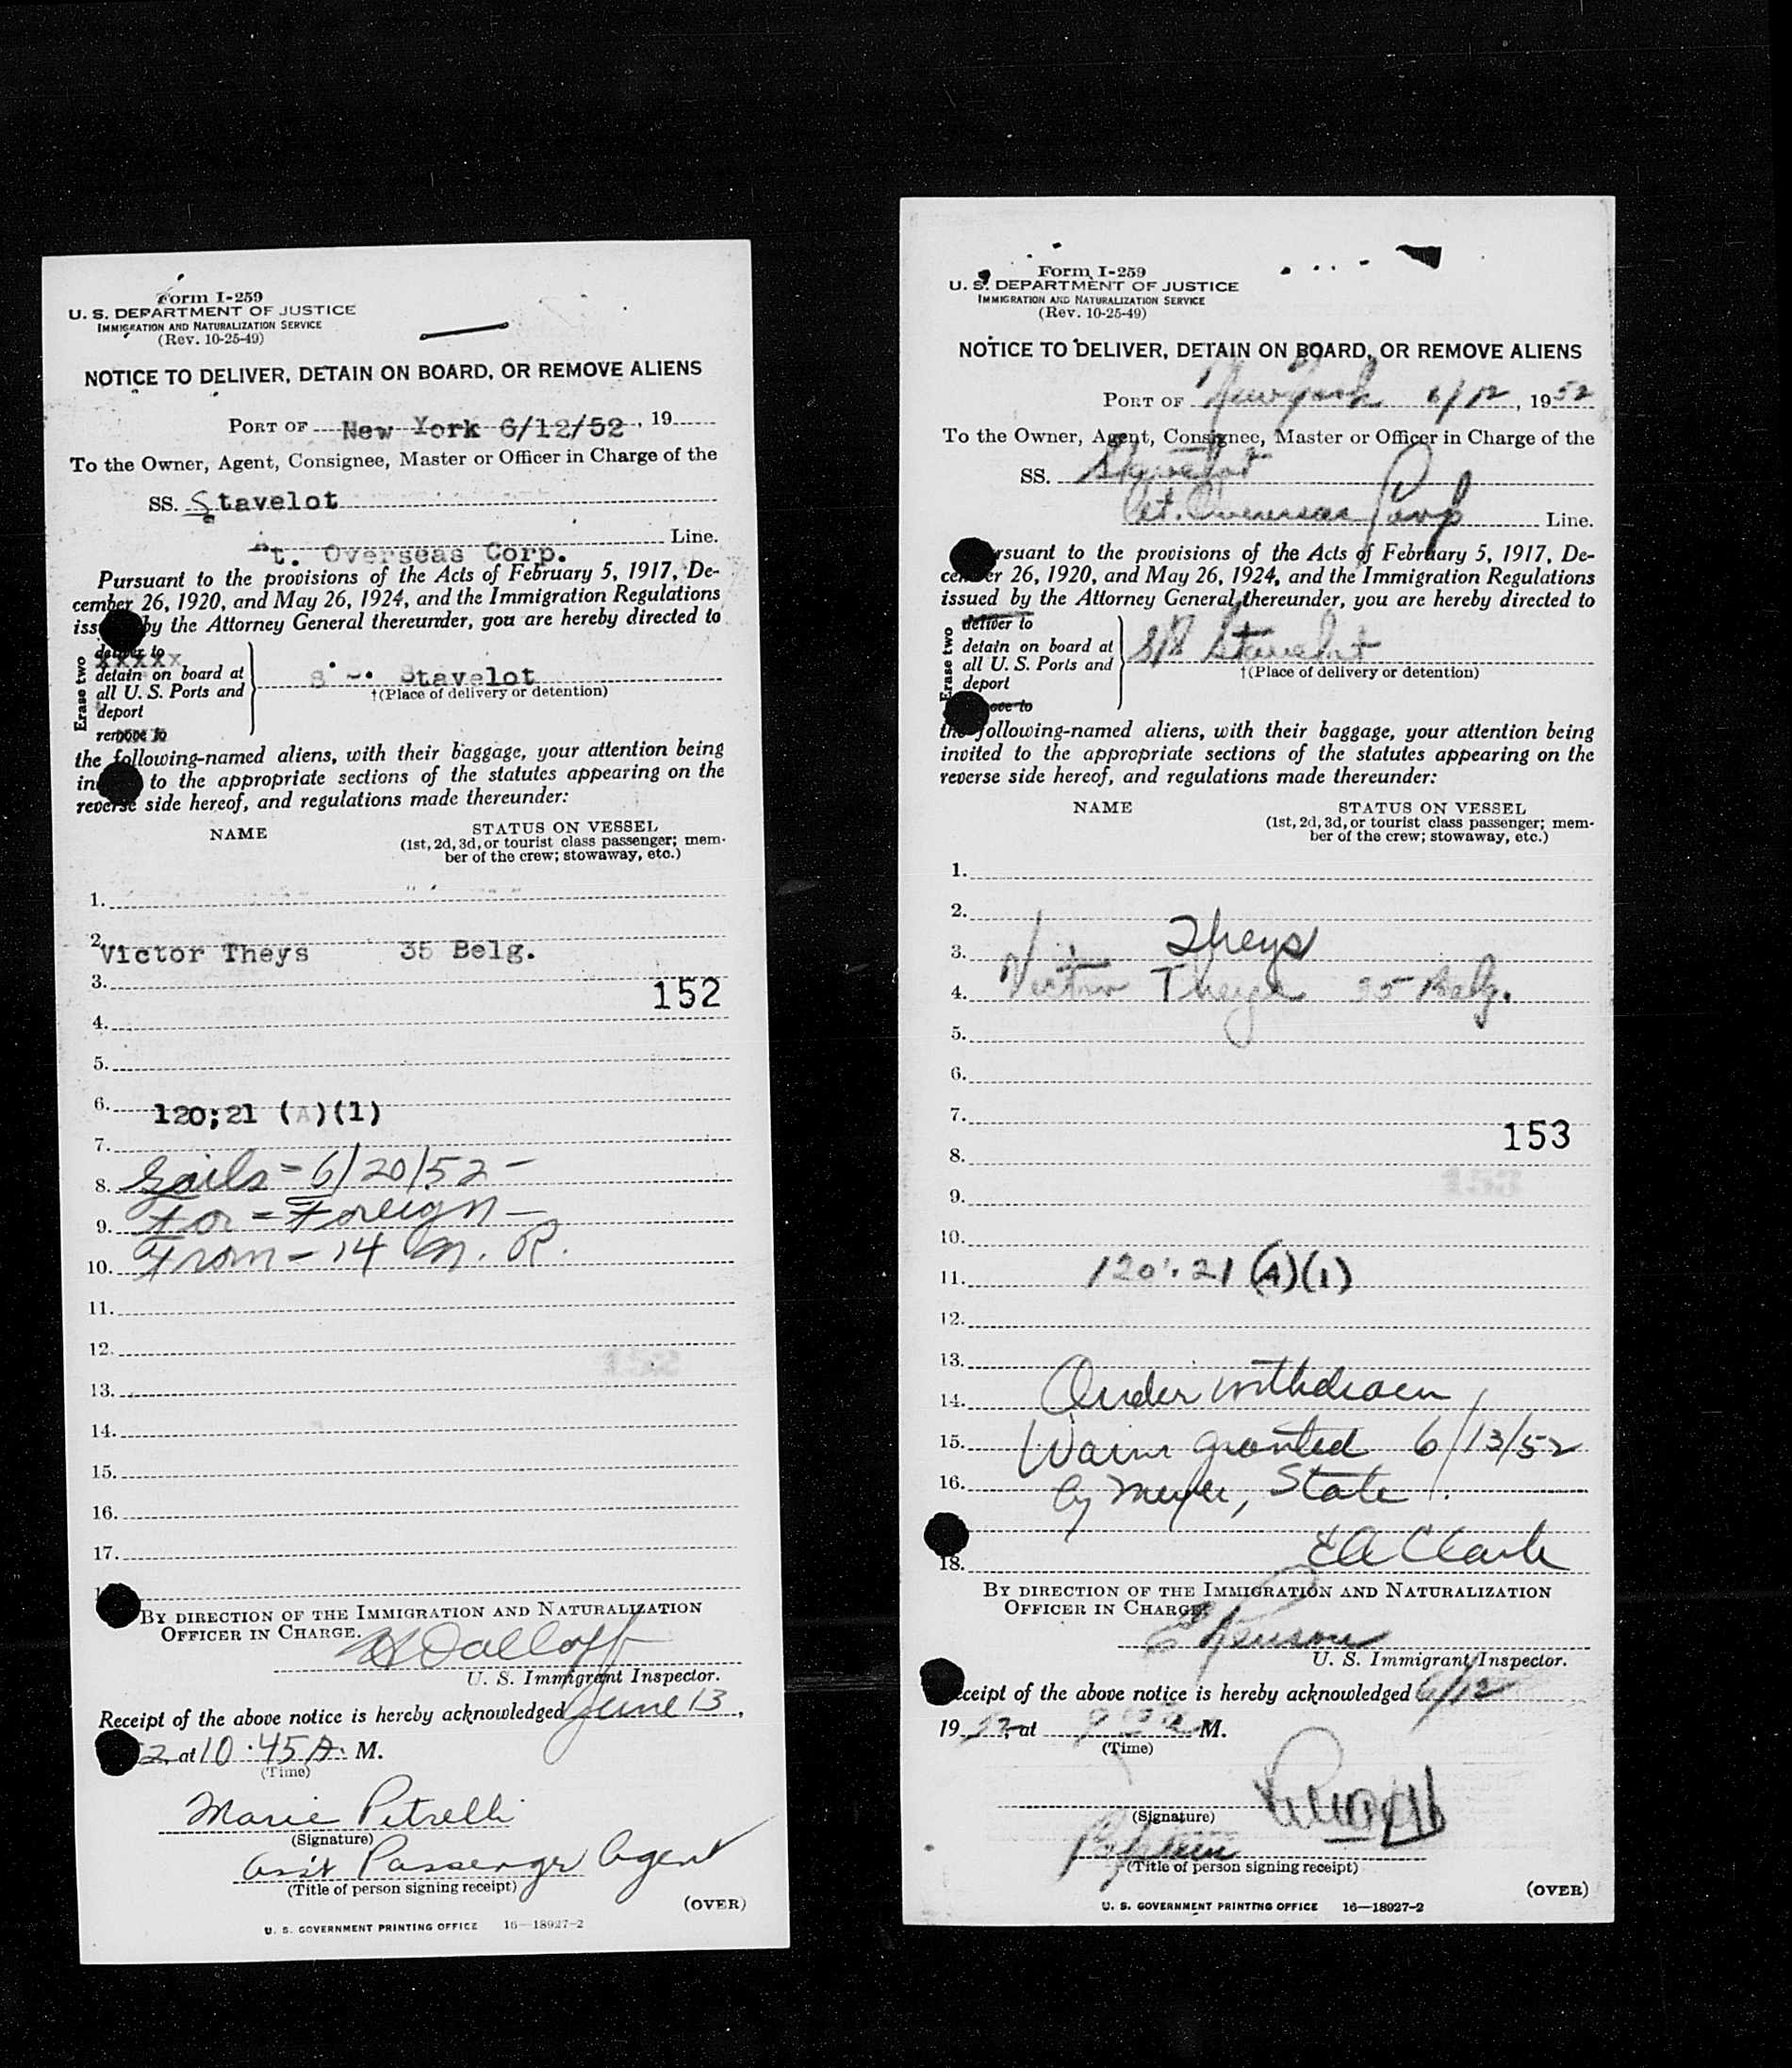 Form I-259
U. S. DEPARTMENT OF JUSTICE
IMMIGRATION AND NATURALIZATION SERVICE
(Rev. 10-25-49)
NOTICE TO DELIVER, DETAIN ON BOARD, OR REMOVE ALIENS
PORT OF New York 6/12/52, 19
To the Owner, Agent, Consignee, Master or Officer in Charge of the
SS. Stavelot
At. Overseas Corp. Line.
Pursuant to the provisions of the Acts of February 5, 1917, De-
cember 26, 1920, and May 26, 1924, and the Immigration Regulations
by the Attorney General thereunder, you are hereby directed to
Erase two
deliver to
detain on board at
all U. S. Ports and
deport
remove to
Stavelot
†(Place of delivery or detention)
the following-named aliens, with their baggage, your attention being
to the appropriate sections of the statutes appearing on the
reverse side hereof, and regulations made thereunder:
NAME STATUS ON VESSEL
(1st, 2d, 3d, or tourist class passenger; mem-
ber of the crew; stowaway, etc.)
1.
2. Victor Theys 35 Belg.
3.
152
4.
5.
6. 120;21 (A)(1)
7.
8. Sails = 6/20/52 -
9. For = Foreign -
10. From = 14 N. R.
11.
12.
13.
14.
15.
16.
17.
BY DIRECTION OF THE IMMIGRATION AND NATURALIZATION
OFFICER IN CHARGE.
U. S. Immigrant Inspector.
Receipt of the above notice is hereby acknowledged June 13,
2 at 10:45 A. M.
(Time)
Marie Petrelli
(Signature)
Asst Passenger Agent
(Title of person signing receipt)
(OVER)
U. S. GOVERNMENT PRINTING OFFICE 16—18927-2
Form I-259
U. S. DEPARTMENT OF JUSTICE
IMMIGRATION AND NATURALIZATION SERVICE
(Rev. 10-25-49)
NOTICE TO DELIVER, DETAIN ON BOARD, OR REMOVE ALIENS
PORT OF New York 6/12, 1952
To the Owner, Agent, Consignee, Master or Officer in Charge of the
SS. Stavelot
At. Overseas Corp Line.
rsuant to the provisions of the Acts of February 5, 1917, De-
cember 26, 1920, and May 26, 1924, and the Immigration Regulations
issued by the Attorney General thereunder, you are hereby directed to
Erase two
deliver to
detain on board at
all U. S. Ports and
deport
ove to
S/S Stavelot
†(Place of delivery or detention)
the following-named aliens, with their baggage, your attention being
invited to the appropriate sections of the statutes appearing on the
reverse side hereof, and regulations made thereunder:
NAME STATUS ON VESSEL
(1st, 2d, 3d, or tourist class passenger; mem-
ber of the crew; stowaway, etc.)
1.
2.
3. Theys
4. Victor 35 Belg.
5.
6.
7.
153
8.
9.
10.
11. 120:21 (A)(1)
12.
13.
14. Order withdrawn
15. Waiver granted 6/13/52
16. by Meyer, State.
E A Clark
18.
BY DIRECTION OF THE IMMIGRATION AND NATURALIZATION
OFFICER IN CHARGE.
U. S. Immigrant Inspector.
eceipt of the above notice is hereby acknowledged 6/12
19 52 at M.
(Time)
(Signature)
(Title of person signing receipt)
(OVER)
U. S. GOVERNMENT PRINTING OFFICE 16—18927-2